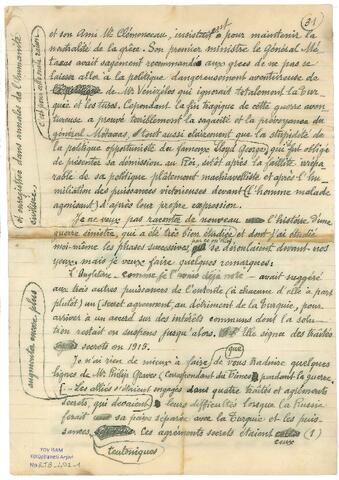 (31)
et son Ami Mr Clémenceau, insistaient pour maintenir la
neutralité de la Grèce. Son premier ministre le Général Mé-
taxas avait sagement recommandé aux grecs de ne pas se
laisser aller à la politique dangereusement aventureuse de
de Mr Vénizélos qui ignorait totalement la Tur-
quie et les turcs. Cependant la fin tragique de cette guerre aven-
tureuse a prouvé terriblement la sagacité et la prévoyance du
général Métaxas, et tout aussi clairement que la stupidité de
la politique opportuniste du fameux Lloyd George, qui fut obligé
de présenter sa démission, au Roi, sitôt après la faillite irrépa-
rable de sa politique platement machiavélique et après l'hu-
miliation des puissances victorieuses devant (l'homme malade
agonisant) d'après leur propre expression.
Je ne veux pas raconter de nouveau l'histoire d'une
guerre sinistre, qui a été très bien étudiée et dont j'ai étudié
moi-même les phases successives, se déroulaient devant nos
yeux, mais je veux faire quelques remarques:
L'Angleterre, comme je l'avais déjà noté, avait suggéré
aux trois autres puissances de l'entente (à chacune d'elle à part
plutôt) un (secret agrement au détriment de la Turquie, pour
arriver à un accord sur des intérêts communs dont la solu-
tion restait en suspens jusqu'alors. Elle signa des traités
secrets en 1915.
Je n'ai rien de mieux à faire que de vous traduire quelques
lignes de Mr Philip Graves (Correspondant du Times) pendant la guerre
(- Les alliés s'étaient engagés dans quatre traités et agréments
secrets, qui leurs difficultés lorsque la Russie
ferait sa paix séparée avec la Turquie et les puis-
sances, Ces agréments secrets étaient (1)
eux
teutoniques
et enregistrée dans annales de l'humanité
civilisée
c'est pour cette noble raison
augmenta encore plus
TDV ISAM
Kütüphanesi Arşivi
No RTB_402-1